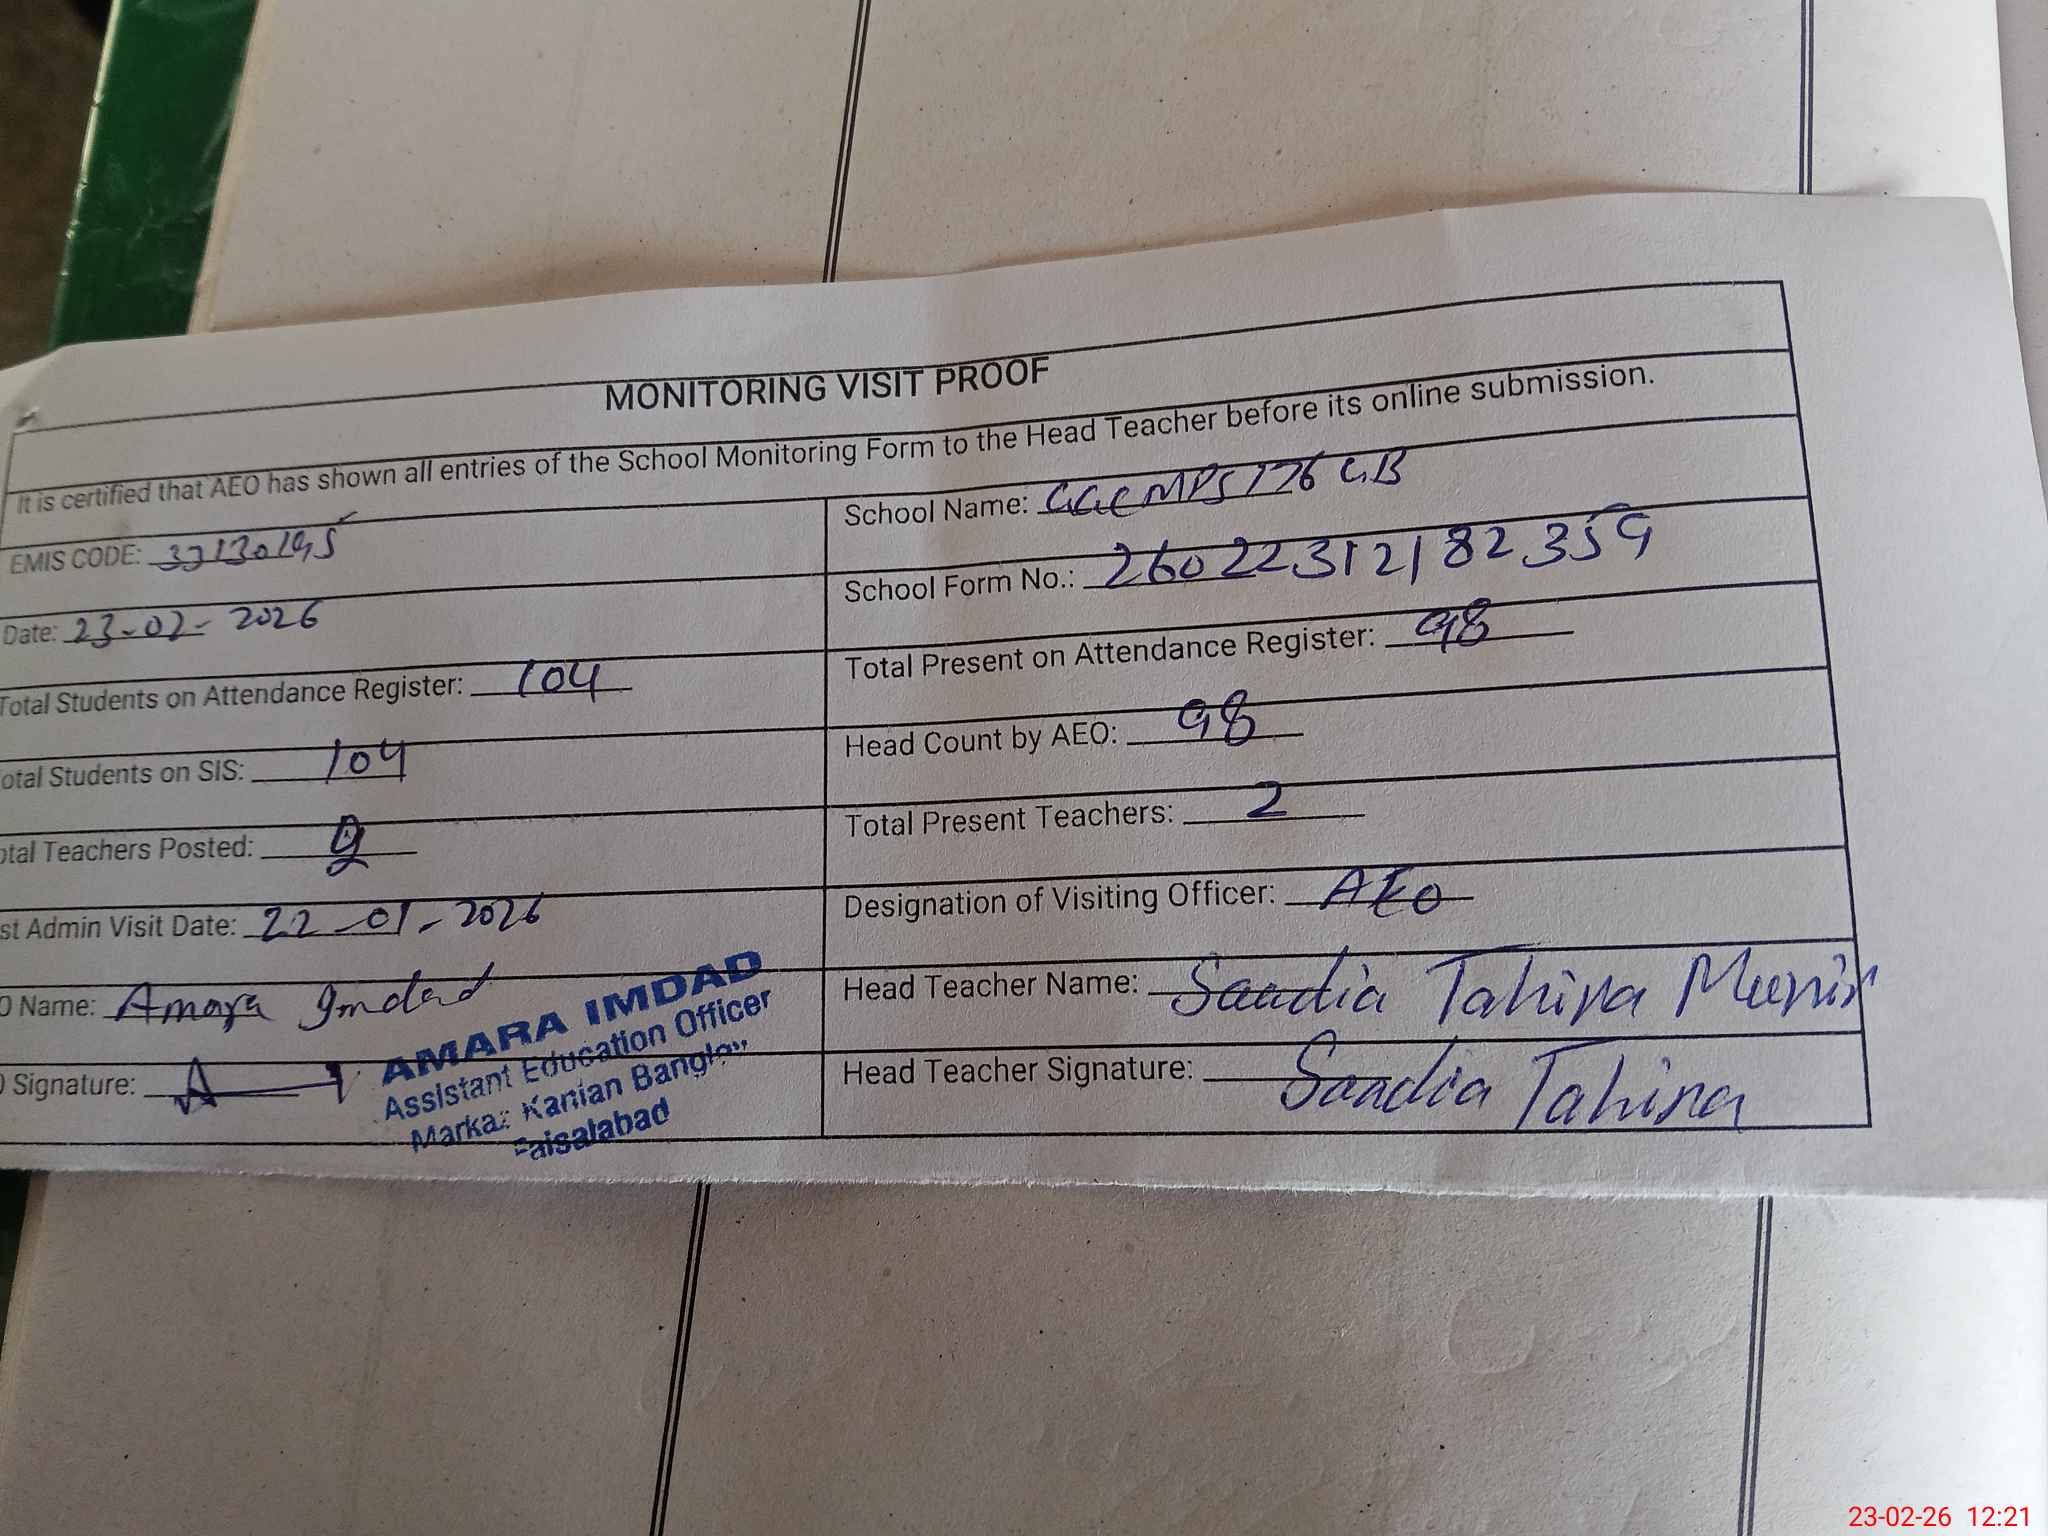 MONITORING VISIT PROOF
It is certified that AEO has shown all entries of the School Monitoring Form to the Head Teacher before its online submission.
EMIS CODE: 33130195
School Name: GGCMPS 176 GB
Date: 23-02-2026
School Form No.: 26022312182359
Total Students on Attendance Register: 104
Total Present on Attendance Register: 98
otal Students on SIS: 104
Head Count by AEO: 98
otal Teachers Posted:
Total Present Teachers: 2
st Admin Visit Date: 22-01-2026
Designation of Visiting Officer: AEO
O Name: Amara Imdad
Head Teacher Name: Saadia Tahira Munir
O Signature:
Head Teacher Signature: Saadia Tahira
AMARA IMDAD
Assistant Education Officer
Markaz Kanian Banglow
Faisalabad
23-02-26 12:21